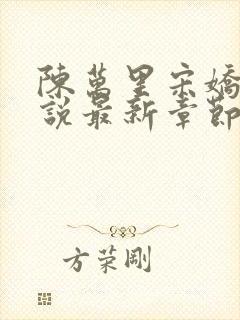 陳萬里宋嬌
說最新章節
方荣剛